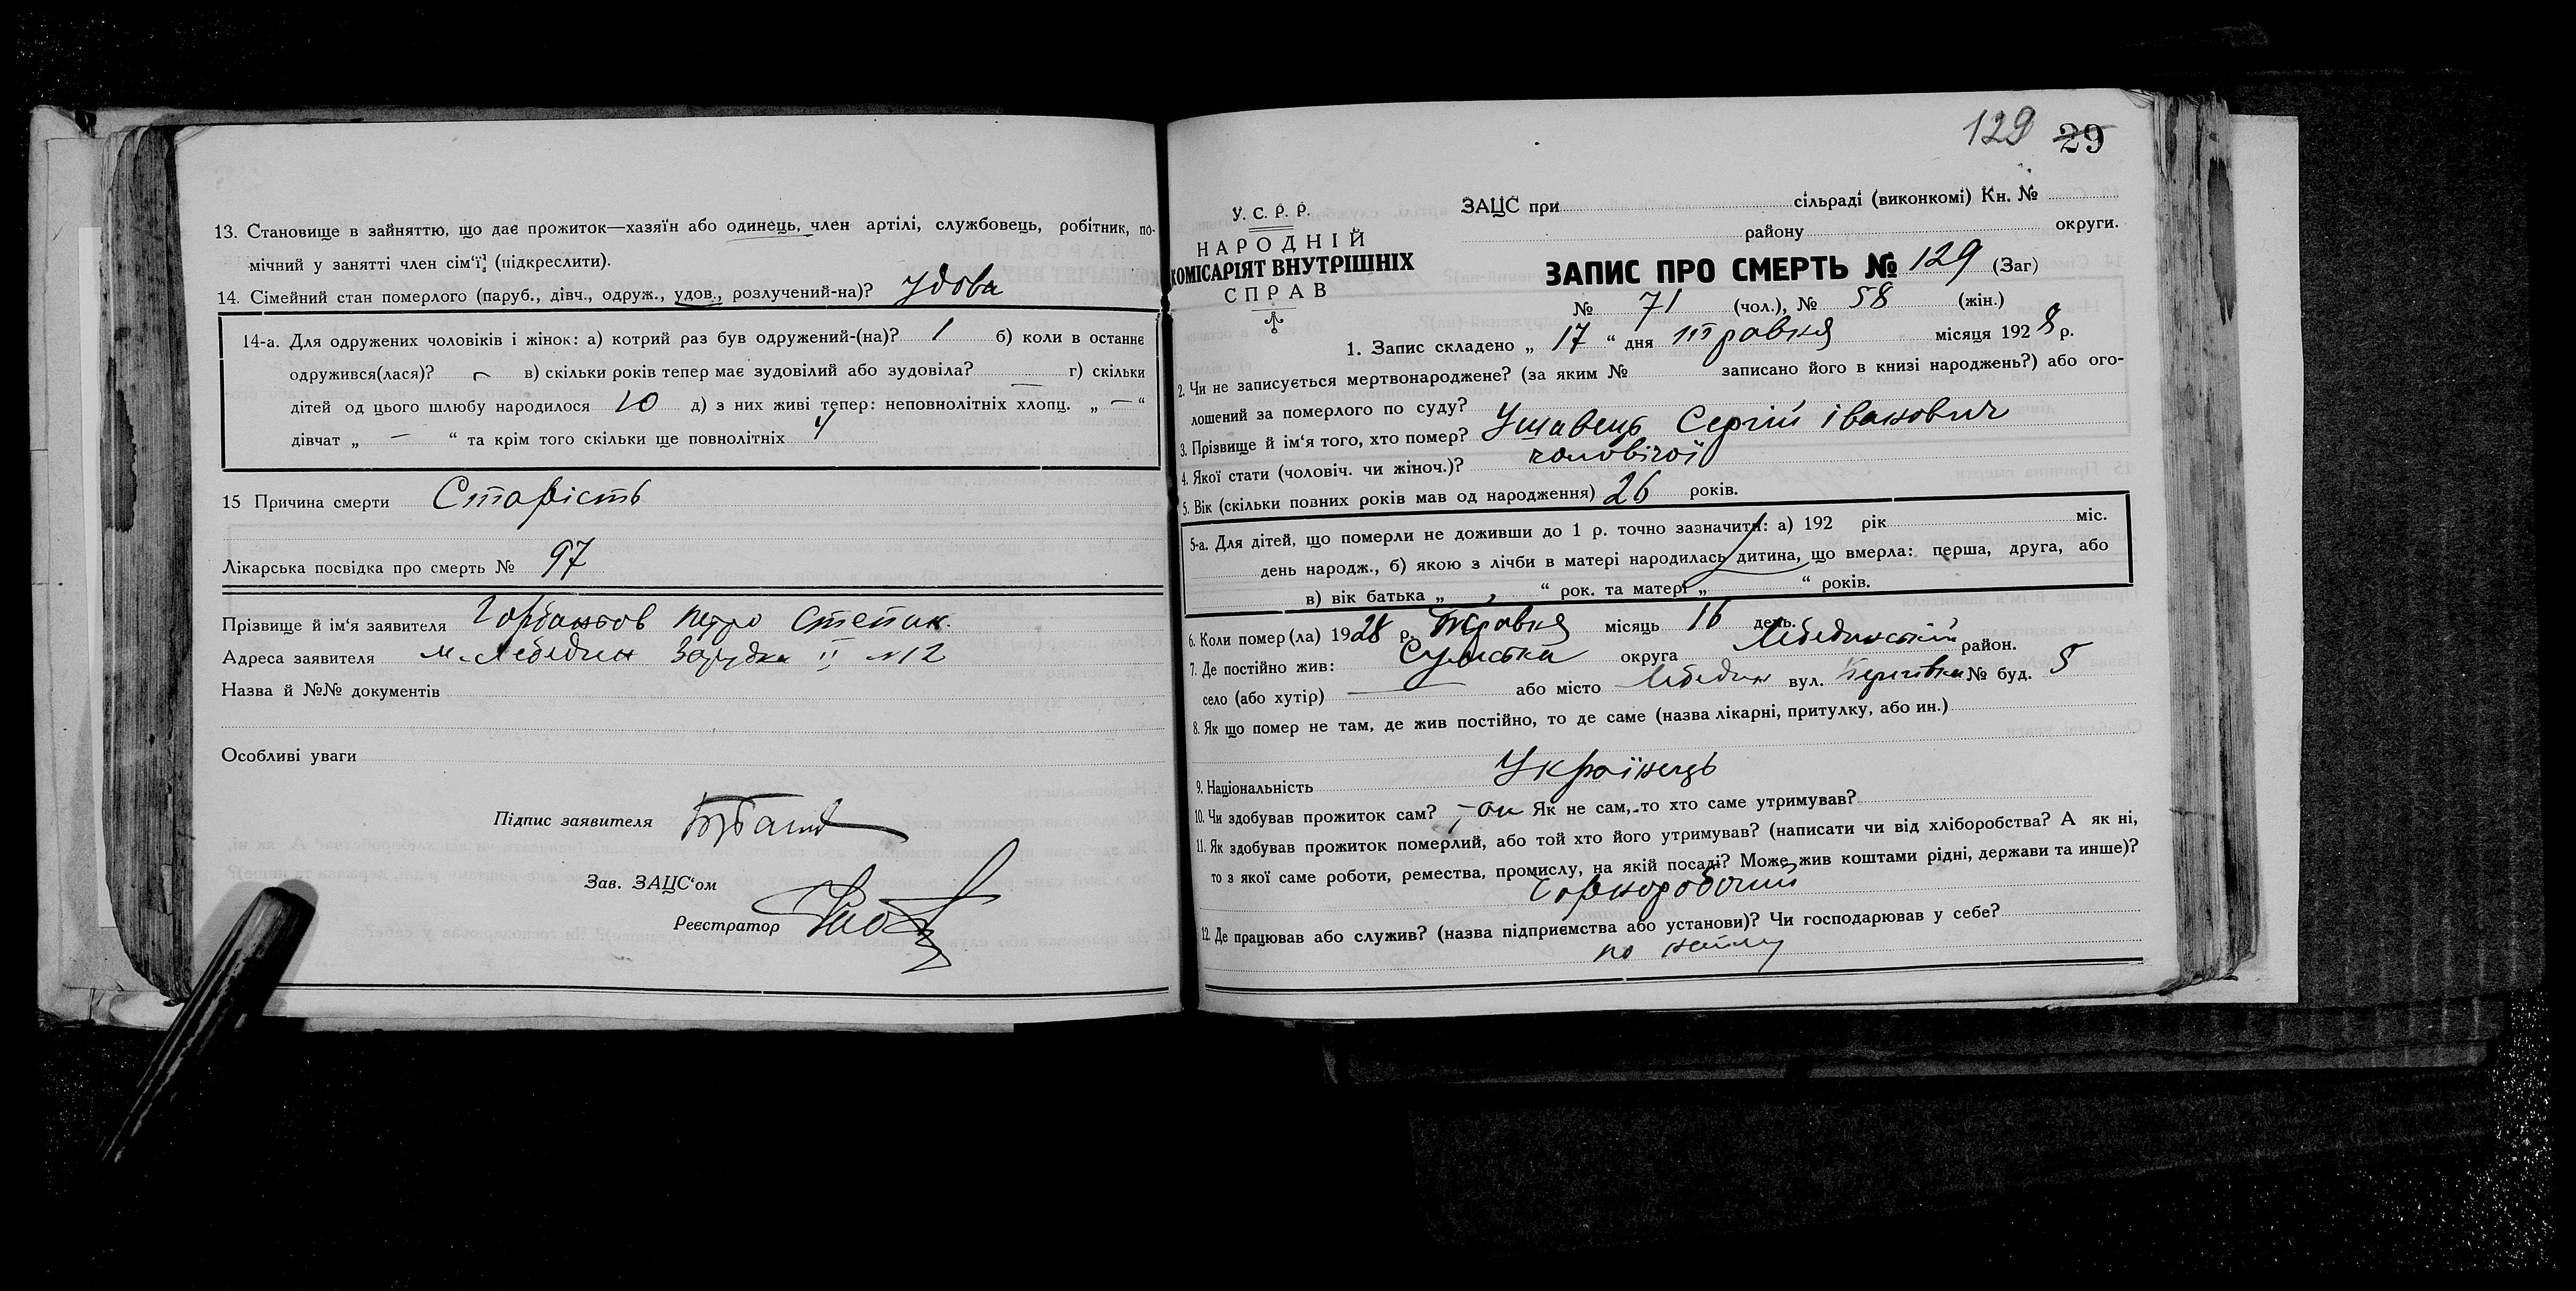 13. Становище в зайняттю, що дає прожиток—хазяїн або одинець, член артілі, службовець, робітник, по-
мічний у занятті член сім'ї (підкреслити).
14. Сімейний стан померлого (паруб., дівч., одруж., удов., розлучений-на)? удова
14-а. Для одружених чоловіків і жінок: а) котрий раз був одружений-(на)? 1 б) коли в останнє
одружився(лася)? в) скільки років тепер має зудовілий або зудовіла? — г) скільки
дітей од цього шлюбу народилося 10 д) з них живі тепер: неповнолітніх хлопц. „ — “
дівчат „ — “ та крім того скільки ще повнолітніх 4
15 Причина смерти Старість
Лікарська посвідка про смерть № 97
Прізвище й ім'я заявителя Петро Степан.
Адреса заявителя м. Лебедин II №12
Назва й №№ документів
Особливі уваги
Підпис заявителя
Зав. ЗАЦС'ом
Реєстратор
129 29
У. С. Р. Р.
НАРОДНІЙ
КОМІСАРІЯТ ВНУТРІШНІХ
СПРАВ
ЗАЦС при сільраді (виконкомі) Кн. №
району округи.
ЗАПИС ПРО СМЕРТЬ № 129 (Заг)
№ 71 (чол.), № 58 (жін.)
1. Запис складено „ 17 “ дня травня місяця 1928 р.
2. Чи не записується мертвонароджене? (за яким № записано його в книзі народжень?) або ого-
лошений за померлого по суду?
3. Прізвище й ім'я того, хто помер? Сергій Іванович
4. Якої стати (чоловіч. чи жіноч.)? чоловічої
5. Вік (скільки повних років мав од народження) 26 років.
5-а. Для дітей, що померли не доживши до 1 р. точно зазначити: а) 192 рік міс.
день народж., б) якою з лічби в матері народилась дитина, що вмерла: перша, друга, або
в) вік батька „ “ рок. та матері „ “ років.
6. Коли помер(ла) 1928 р. Травня місяць 16 день.
7. Де постійно жив: Сумська округа Лебединський район.
село (або хутір) — або місто Лебедин вул. № буд. 5
8. Як що помер не там, де жив постійно, то де саме (назва лікарні, притулку, або ин.)
9. Національність Українець
10. Чи здобував прожиток сам? Як не сам, то хто саме утримував?
11. Як здобував прожиток померлий, або той хто його утримував? (написати чи від хліборобства? А як ні,
то з якої саме роботи, ремества, промислу, на якій посаді? Може жив коштами рідні, держави та инше)?
Чорноробочий
12. Де працював або служив? (назва підприємства або установи)? Чи господарював у себе?
по найму